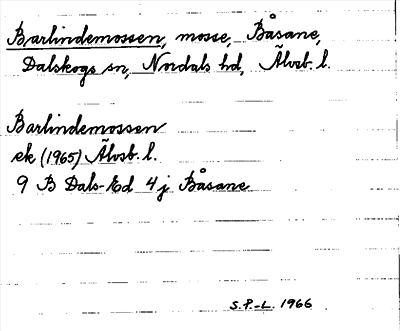 Barlindemossen, mosse, Båsane,
Dalskogs sn, Nordals hd, Älvsb. l.
Barlindemossen
ek (1965) Älvsb. l.
9 B Dals-Ed 4 j Båsane
S.P.-L. 1966